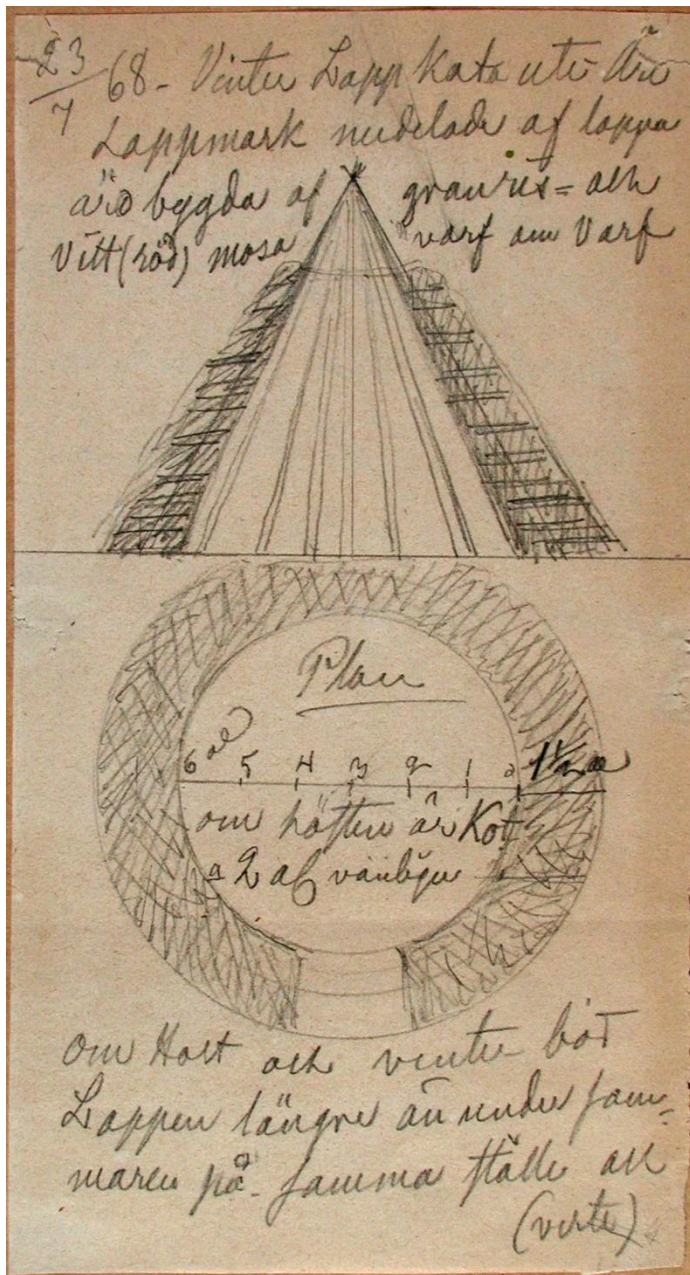 23/7 68 - Vinter Lappkåta uti Åre
Lappmark af lappa
äro bygda af granris = och
Vitt (röd) mosa varf om varf
Plan
6 al 5 4 3 2 1 1½ al
om hösten är Kot
a 2 al vanligen
om Höst och vinter bor
Lappen längre än under som-
maren på samma ställe och
(verte)